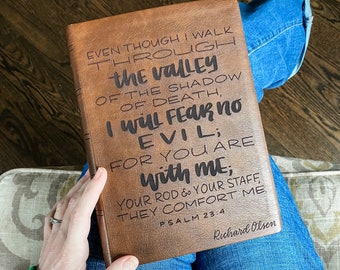 EVEN THOUGH I WALK
THROUGH
the VALLEY
OF THE SHADOW
OF DEATH,
I WILL FEAR NO
EVIL;
FOR YOU ARE
with ME;
YOUR ROD & YOUR STAFF,
THEY COMFORT ME
PSALM 23:4
Richard Olsen